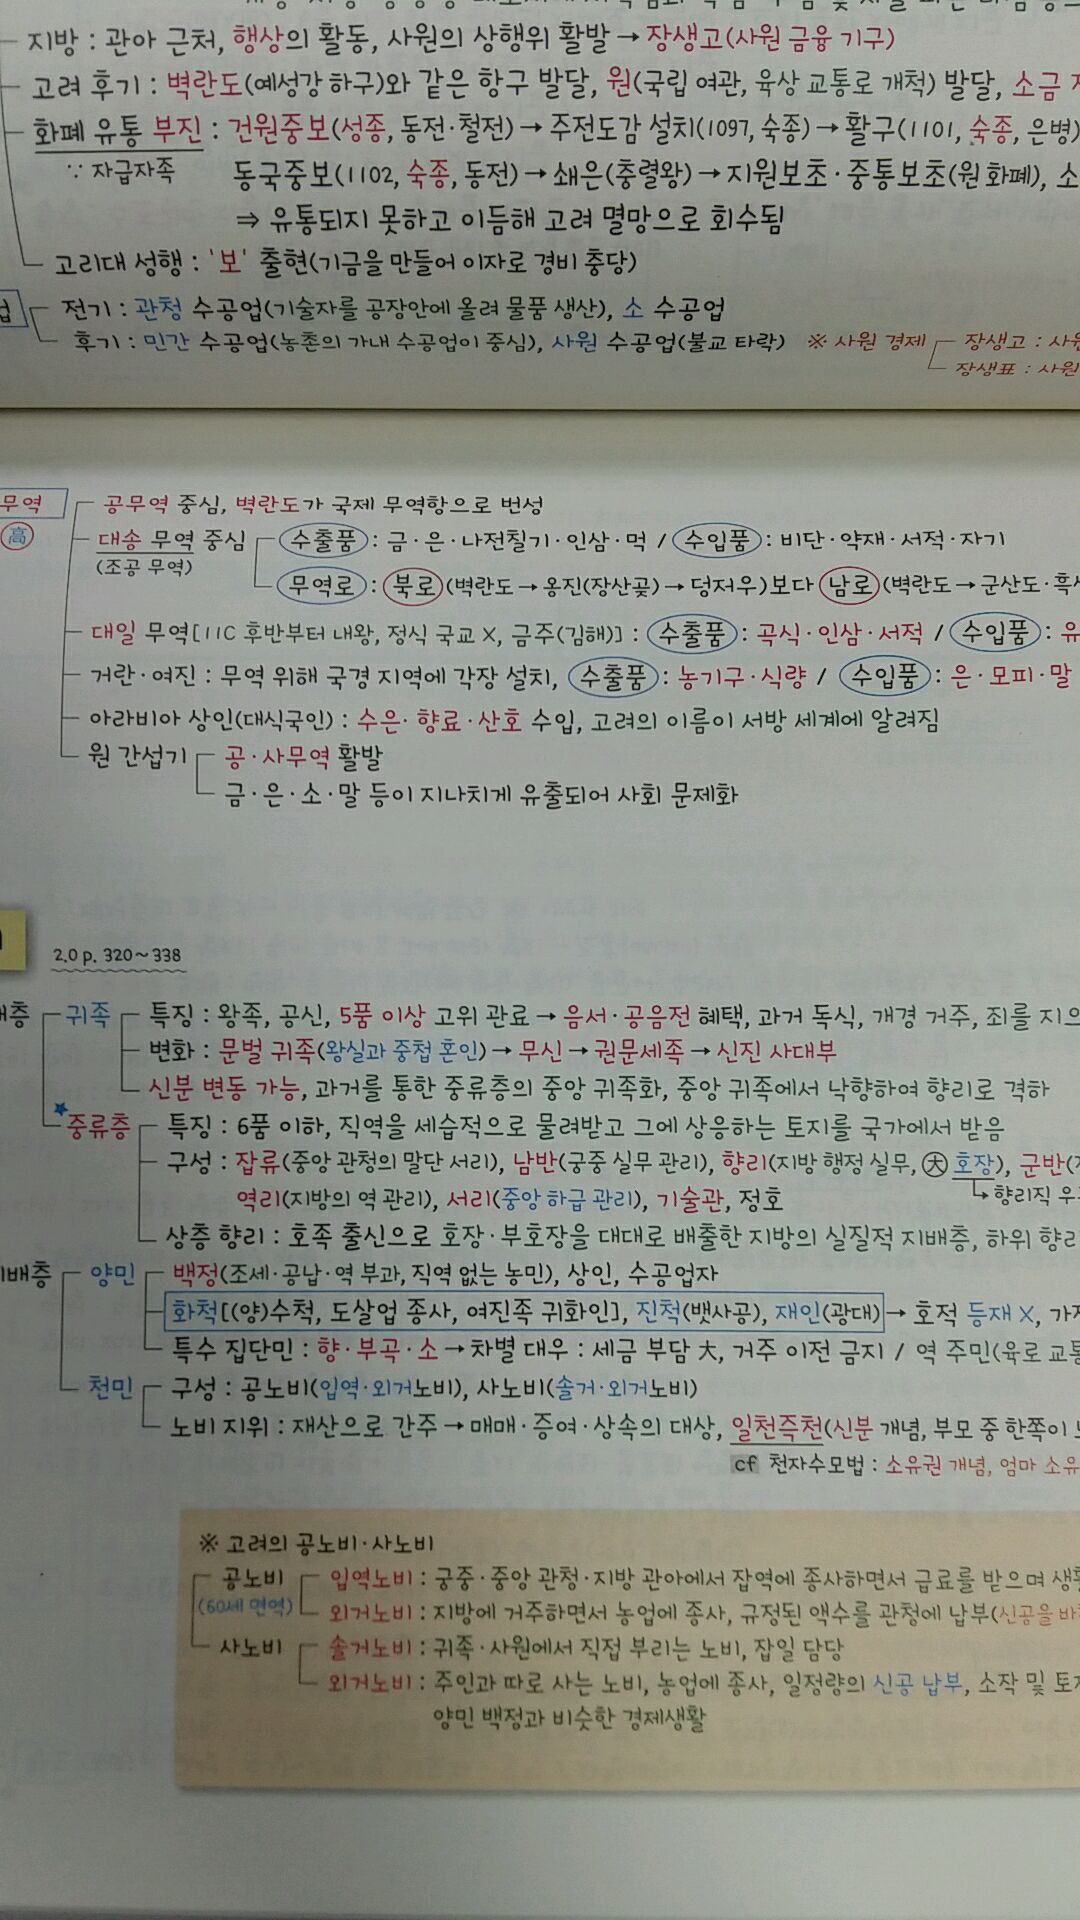 지방 : 관아 근처, 행상의 활동, 사원의 상행위 활발 → 장생고(사원 금융 기구)
고려 후기 : 벽란도(예성강 하구)와 같은 항구 발달, 원(국립 여관, 육상 교통로 개척) 발달, 소금
화폐 유통 부진 : 건원중보(성종, 동전·철전) → 주전도감 설치(1097, 숙종) → 활구(1101, 숙종, 은병)
∵ 자급자족 동국중보(1102, 숙종, 동전) → 쇄은(충렬왕) → 지원보초·중통보초(원 화폐),
⇒ 유통되지 못하고 이듬해 고려 멸망으로 회수됨
고리대 성행 : '보' 출현(기금을 만들어 이자로 경비 충당)
업 전기 : 관청 수공업(기술자를 공장안에 올려 물품 생산), 소 수공업
후기 : 민간 수공업(농촌의 가내 수공업이 중심), 사원 수공업(불교 타락) ※ 사원 경제 장생고 : 사원
장생표 : 사원
무역 공무역 중심, 벽란도가 국제 무역항으로 번성
高 대송 무역 중심 수출품 : 금·은·나전칠기·인삼·먹 / 수입품 : 비단·약재·서적·자기
(조공 무역) 무역로 : 북로(벽란도 → 옹진(장산곶) → 덩저우)보다 남로(벽란도 → 군산도·흑산
대일 무역[11C 후반부터 내왕, 정식 국교 X, 금주(김해)] : 수출품 : 곡식·인삼·서적 / 수입품 : 유
거란·여진 : 무역 위해 국경 지역에 각장 설치, 수출품 : 농기구·식량 / 수입품 : 은·모피·말
아라비아 상인(대식국인) : 수은·향료·산호 수입, 고려의 이름이 서방 세계에 알려짐
원 간섭기 공·사무역 활발
금·은·소·말 등이 지나치게 유출되어 사회 문제화
2.0 p. 320~338
배층 귀족 특징 : 왕족, 공신, 5품 이상 고위 관료 → 음서·공음전 혜택, 과거 독식, 개경 거주, 죄를 지으
변화 : 문벌 귀족(왕실과 중첩 혼인) → 무신 → 권문세족 → 신진 사대부
신분 변동 가능, 과거를 통한 중류층의 중앙 귀족화, 중앙 귀족에서 낙향하여 향리로 격하
중류층 특징 : 6품 이하, 직역을 세습적으로 물려받고 그에 상응하는 토지를 국가에서 받음
구성 : 잡류(중앙 관청의 말단 서리), 남반(궁중 실무 관리), 향리(지방 행정 실무, 大 호장), 군반(
역리(지방의 역 관리), 서리(중앙 하급 관리), 기술관, 정호 ↳ 향리직 우
상층 향리 : 호족 출신으로 호장·부호장을 대대로 배출한 지방의 실질적 지배층, 하위 향리
배층 양민 백정(조세·공납·역 부과, 직역 없는 농민), 상인, 수공업자
화척[(양)수척, 도살업 종사, 여진족 귀화인], 진척(뱃사공), 재인(광대) → 호적 등재 X,
특수 집단민 : 향·부곡·소 → 차별 대우 : 세금 부담 大, 거주 이전 금지 / 역 주민(육로 교통
천민 구성 : 공노비(입역·외거노비), 사노비(솔거·외거노비)
노비 지위 : 재산으로 간주 → 매매·증여·상속의 대상, 일천즉천(신분 개념, 부모 중 한쪽이
cf 천자수모법 : 소유권 개념, 엄마 소유
※ 고려의 공노비·사노비
공노비 입역노비 : 궁중·중앙 관청·지방 관아에서 잡역에 종사하면서 급료를 받으며 생활
(60세 면역) 외거노비 : 지방에 거주하면서 농업에 종사, 규정된 액수를 관청에 납부(신공을
사노비 솔거노비 : 귀족·사원에서 직접 부리는 노비, 잡일 담당
외거노비 : 주인과 따로 사는 노비, 농업에 종사, 일정량의 신공 납부, 소작 및 토지
양민 백정과 비슷한 경제생활